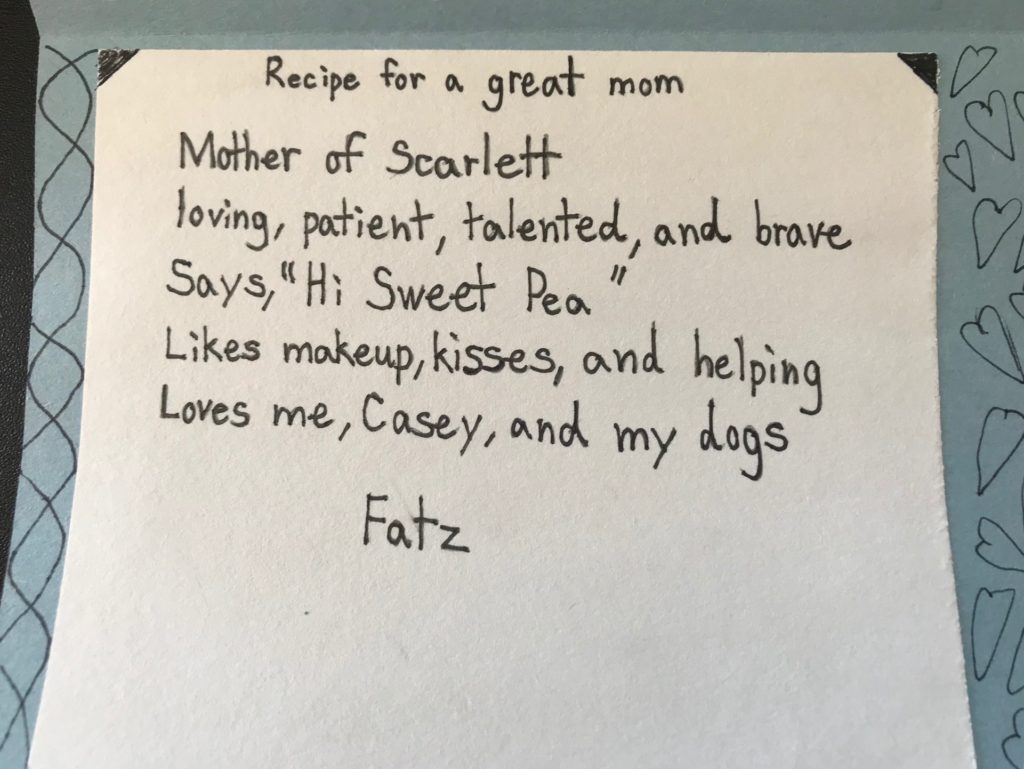 Recipe for a great mom
Mother of Scarlett
loving, patient, talented, and brave
Says, "Hi Sweet Pea"
Likes makeup, kisses, and helping
Loves me, Casey, and my dogs
Fatz